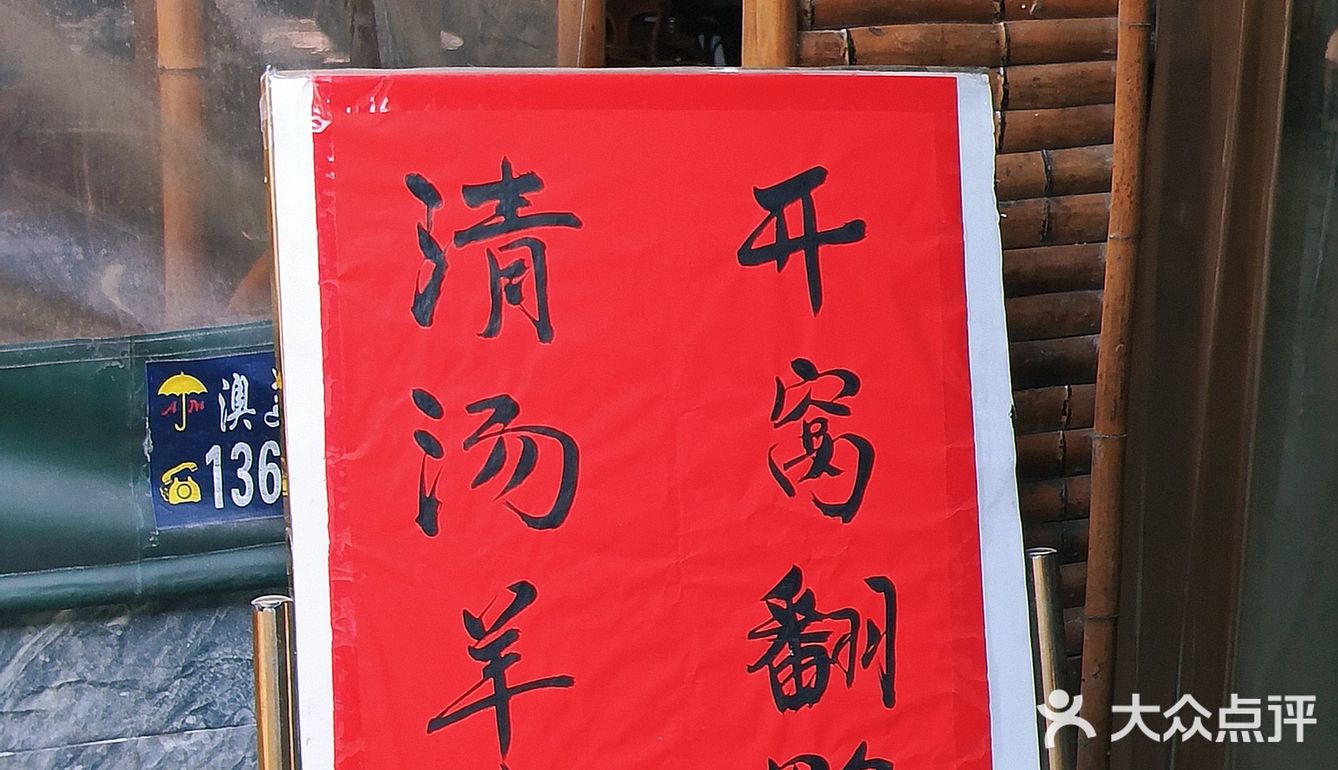 开窝翻
清汤羊
澳
136
大众点评